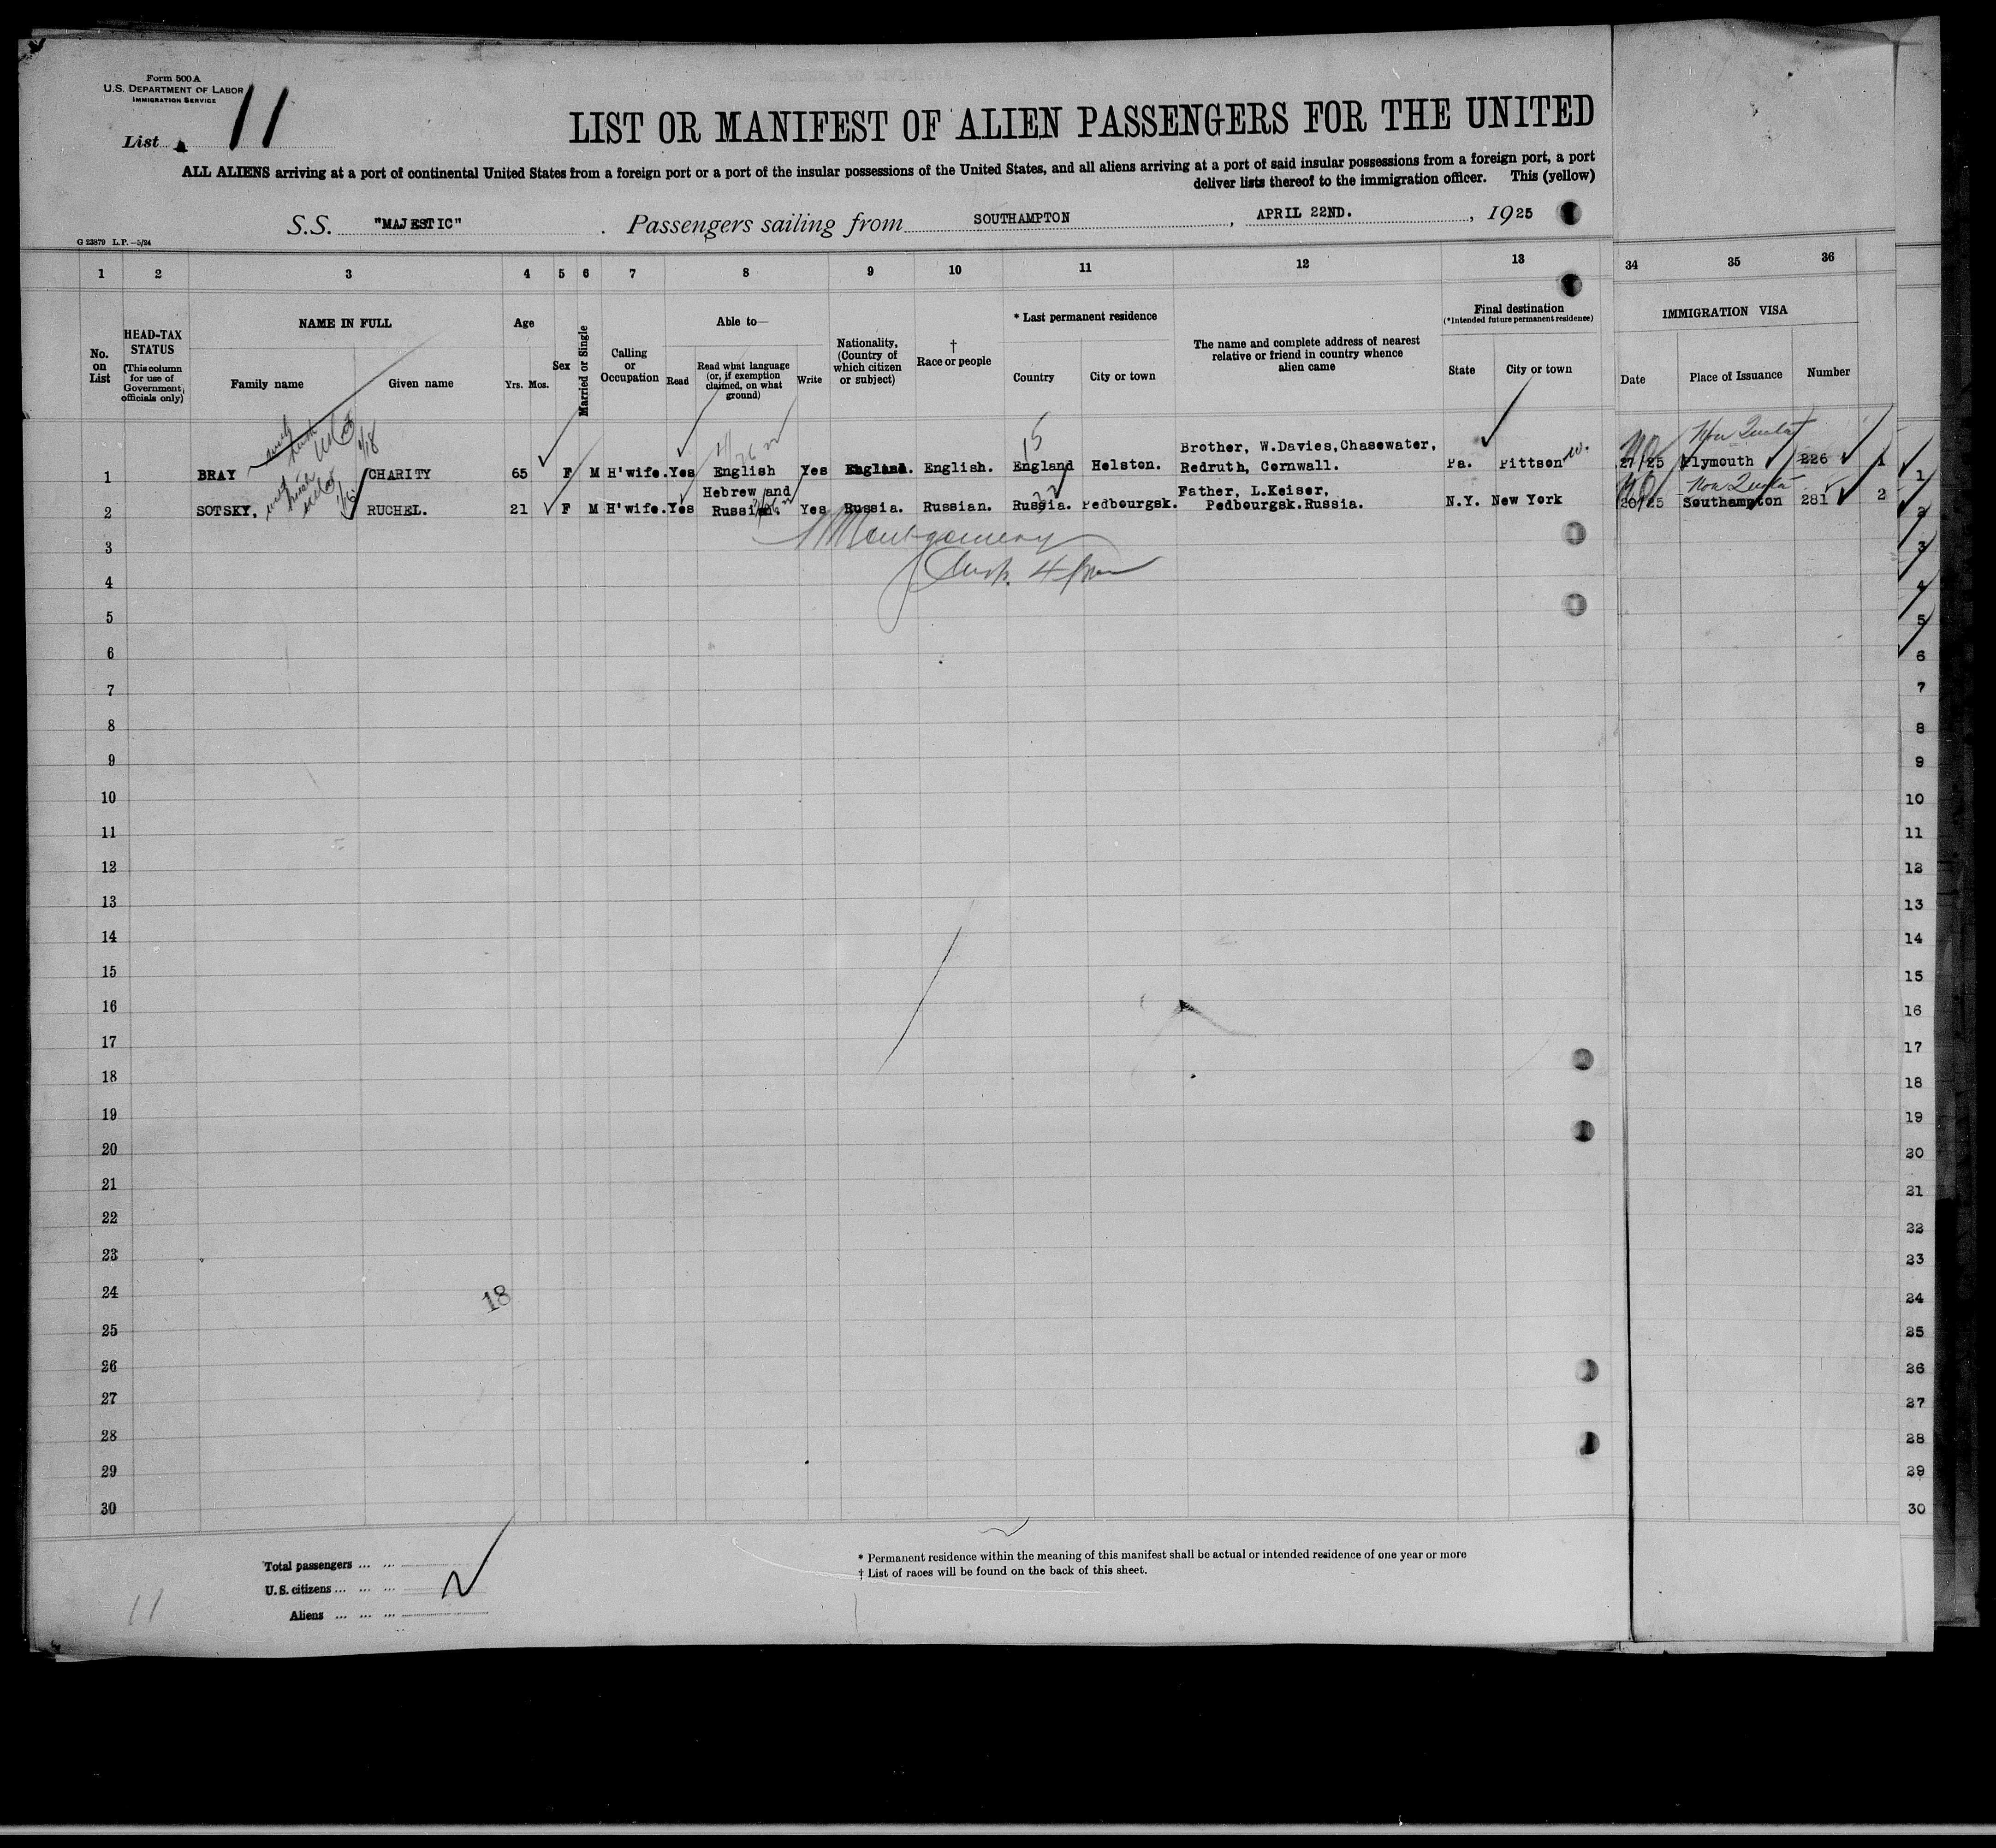 Form 500 A
U.S. DEPARTMENT OF LABOR
IMMIGRATION SERVICE
List 11
LIST OR MANIFEST OF ALIEN PASSENGERS FOR THE UNITED
ALL ALIENS arriving at a port of continental United States from a foreign port or a port of the insular possessions of the United States, and all aliens arriving at a port of said insular possessions from a foreign port, a port
deliver lists thereof to the immigration officer. This (yellow)
S.S. "MAJESTIC" . Passengers sailing from SOUTHAMPTON , APRIL 22ND. , 1925
G 23879 L.P.-5/24
1 2 3 4 5 6 7 8 9 10 11 12 13 34 35 36
No. on List
HEAD-TAX STATUS
(This column for use of Government officials only)
NAME IN FULL
Family name Given name
Age
Yrs. Mos.
Sex
Married or Single
Calling or Occupation
Able to—
Read
Read what language (or, if exemption claimed, on what ground)
Write
Nationality. (Country of which citizen or subject)
† Race or people
* Last permanent residence
Country City or town
The name and complete address of nearest relative or friend in country whence alien came
Final destination
(*Intended future permanent residence)
State City or town
IMMIGRATION VISA
Date Place of Issuance Number
15
Non Quota
1 BRAY CHARITY 65 F M H'wife. Yes English Yes England. English. England Helston. Brother, W.Davies,Chasewater, Redruth, Cornwall. Pa. Pittson 27/25 Plymouth 226 1
Non Quota
2 SOTSKY, RUCHEL. 21 F M H'wife. Yes Hebrew and Russian. Yes Russia. Russian. Russia. Pedbourgsk. Father, L.Keiser, Pedbourgsk.Russia. N.Y. New York 20/25 Southampton 281 2
Montgomery
3
4
5
6
7
8
9
10
11
12
13
14
15
16
17
18
19
20
21
22
23
24
25
26
27
28
29
30
1
2
3
4
5
6
7
8
9
10
11
12
13
14
15
16
17
18
19
20
21
22
23
24
25
26
27
28
29
30
18
Total passengers ... ...
U.S. citizens ... ... ...
Aliens ... ... ...
11
* Permanent residence within the meaning of this manifest shall be actual or intended residence of one year or more
† List of races will be found on the back of this sheet.